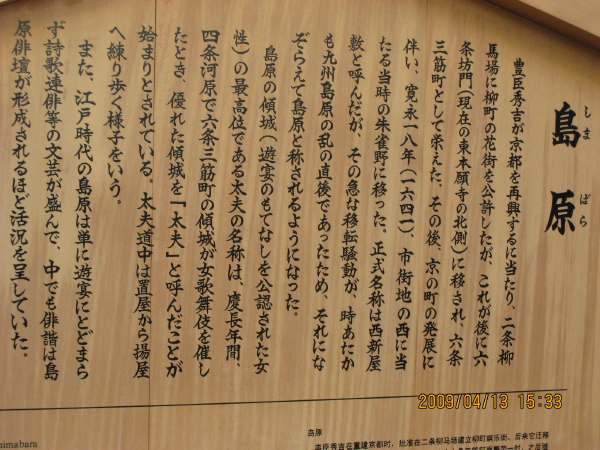 島原
しまばら
豊臣秀吉が京都を再興するに当たり、二条柳
馬場に柳町の花街を公許したが、これが後に六
条坊門(現在の東本願寺の北側)に移され、六条
三筋町として栄えた。その後、京の町の発展に
伴い、寛永一八年(一六四一)、市街地の西に当
たる当時の朱雀野に移った。正式名称は西新屋
敷と呼んだが、その急な移転騒動が、時あたか
も九州島原の乱の直後であったため、それにな
ぞらえて島原と称されるようになった。
島原の傾城(遊宴のもてなしを公認された女
性)の最高位である太夫の名称は、慶長年間、
四条河原で六条三筋町の傾城が女歌舞伎を催し
たとき、優れた傾城を「太夫」と呼んだことが
始まりとされている。太夫道中は置屋から揚屋
へ練り歩く様子をいう。
また、江戸時代の島原は単に遊宴にとどまら
ず詩歌連俳等の文芸が盛んで、中でも俳諧は島
原俳壇が形成されるほど活況を呈していた。
himabara
岛原
丰臣秀吉在重建京都时，批准在二条柳马场建立柳町娱乐街，后来它迁移
2009/04/13 15:33